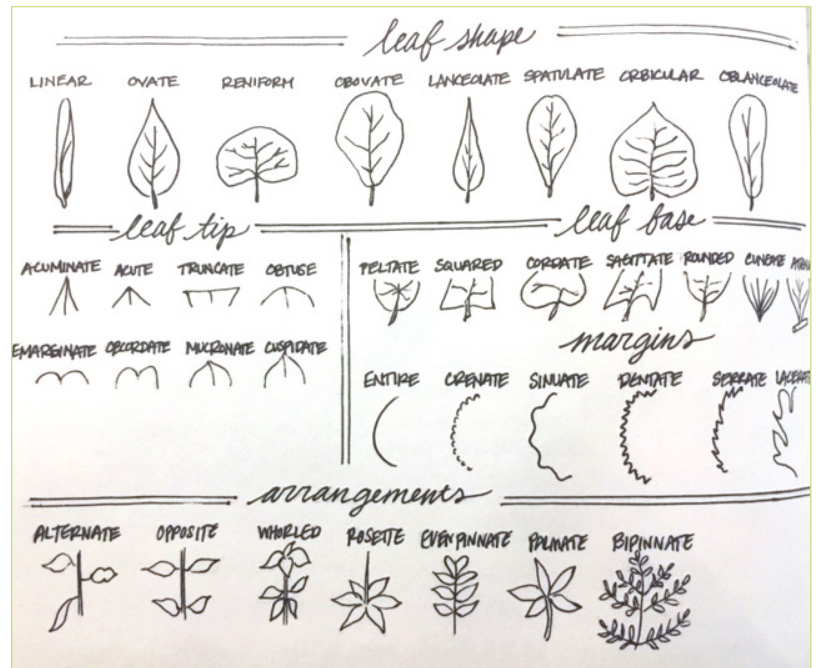 leaf shape
LINEAR OVATE RENIFORM OBOVATE LANCEOLATE SPATULATE ORBICULAR OBLANCEOLATE
leaf tip
ACUMINATE ACUTE TRUNCATE OBTUSE
EMARGINATE OBCORDATE MUCRONATE CUSPIDATE
leaf base
PELTATE SQUARED CORDATE SAGITTATE ROUNDED CUNEATE
margins
ENTIRE CRENATE SINUATE DENTATE SERRATE
arrangements
ALTERNATE OPPOSITE WHORLED ROSETTE EVEN PINNATE PALMATE BIPINNATE